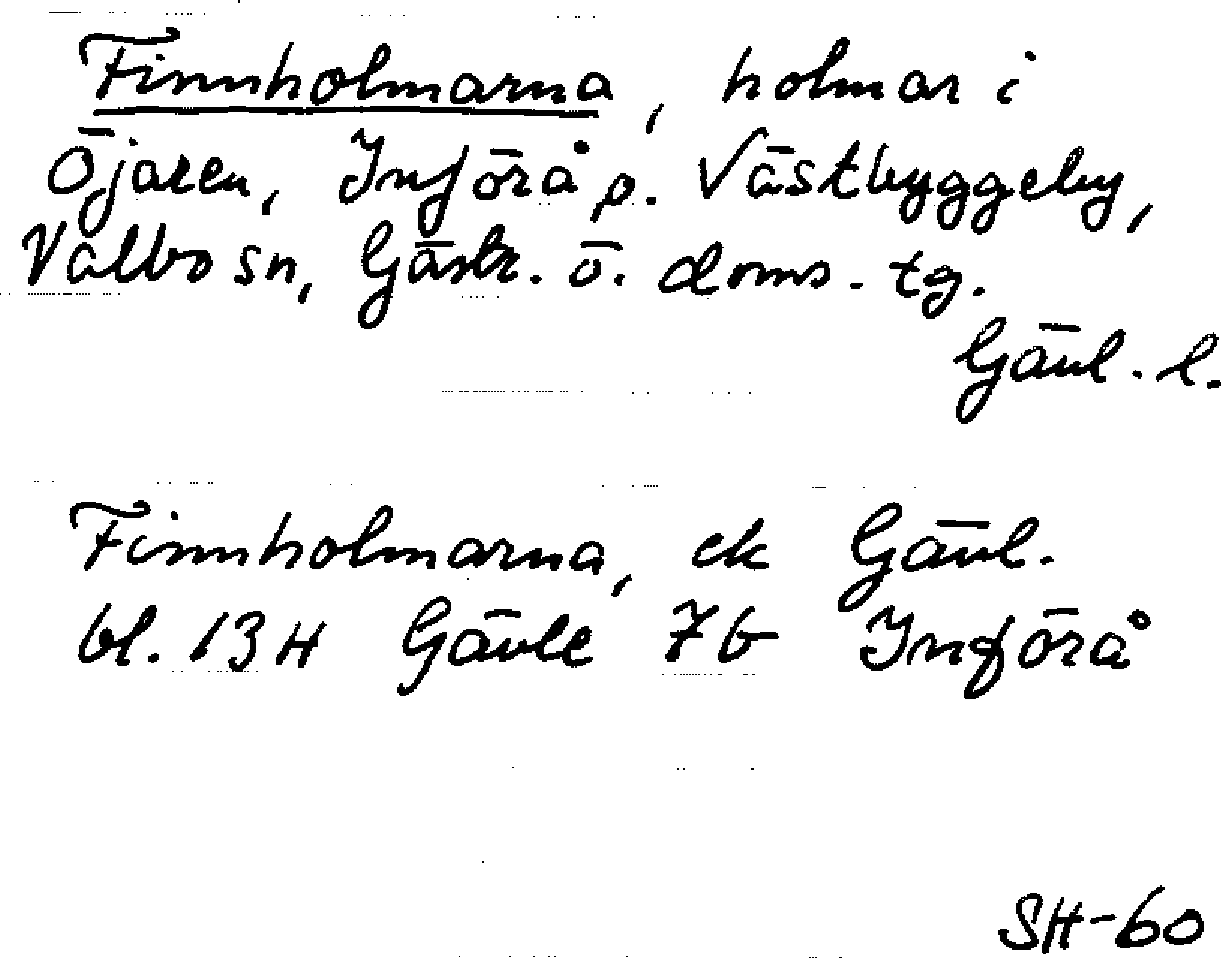 Finnholmarna, holmar i
Öjaren, Införå p. Västbyggeby,
Valbo sn, Gästr. ö. doms. tg.
Gävl. l.
Finnholmarna, ek Gävl.
bl. 13H Gävle 7b Införå
SH-60